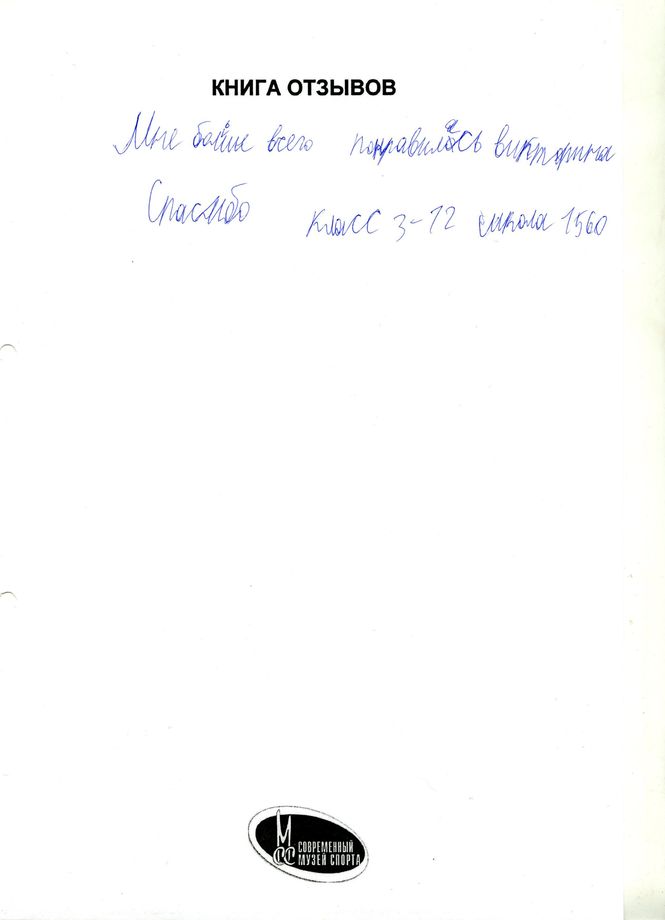 КНИГА ОТЗЫВОВ
Мне больше всего понравилась викторина
Спасибо класс 3-12 школа 1560
М
СС СОВРЕМЕННЫЙ
МУЗЕЙ СПОРТА